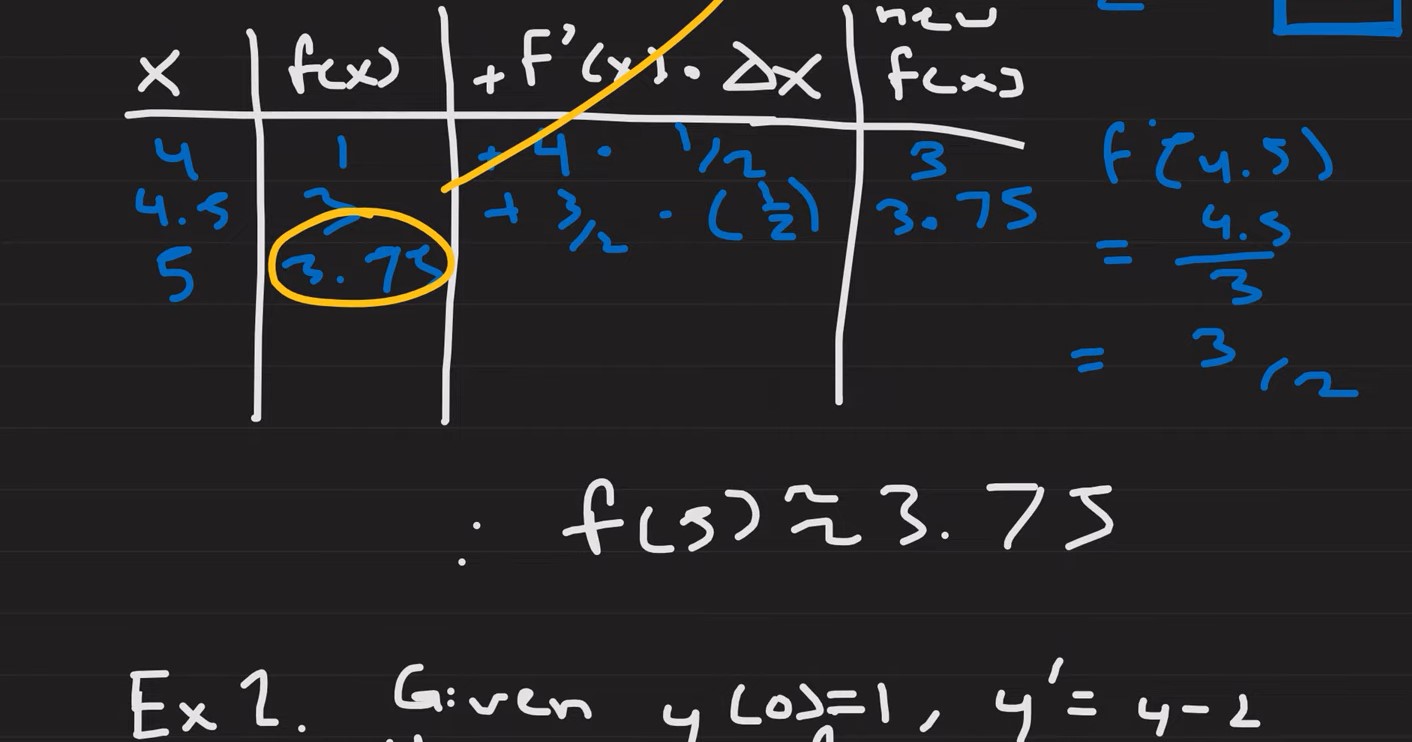 new
x f(x) + F'(x) · Δx f(x)
4 1 + 4 · 1/2 3
4.5 3 + 3/2 · (1/2) 3.75
5 3.75
f'(4.5)
= 4.5/3
= 3/2
∴ f(5) ≈ 3.75
Ex 2. Given y(0)=1, y' = y-2